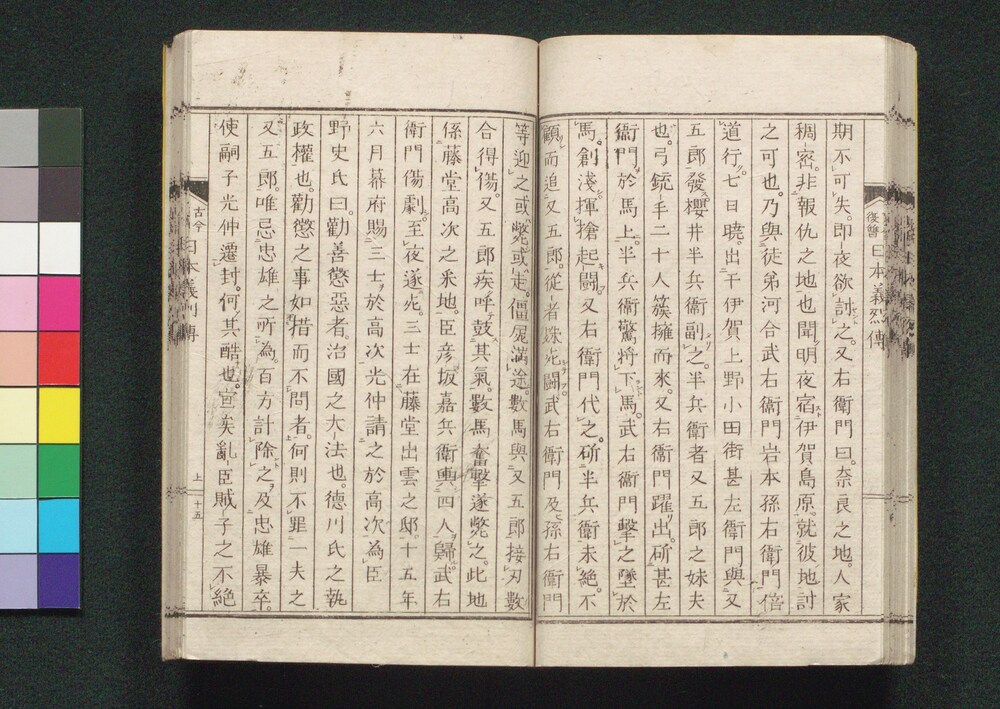 期不可失。即夜欲討之。又右衛門曰。奈良之地。人家
稠密。非報仇之地也聞明夜宿伊賀島原。就彼地討
之可也。乃與徒弟河合武右衞門岩本孫右衞門倍
道行。七日曉。出于伊賀上野小田街甚左衞門與又
五郎發櫻井半兵衞副之。半兵衞者又五郎之妹夫
也。弓銃手二十人簇擁而來。又右衞門躍出。斫甚左
衞門於馬上。半兵衞驚將下馬。武右衞門擊之墜於
馬。創淺揮搶起鬪。又右衞門代之。斫半兵衞未絕。不
顧而追又五郎。從者殊死鬪。武右衞門及孫右衞門
等迎之或斃或走。僵屍滿途。數馬與又五郎接刃數
合得傷。又五郎疾呼鼓其氣。數馬奮擊遂斃之。此地
係藤堂高次之采地。臣彦坂嘉兵衞輿四人歸。武右
衞門傷劇。至夜遂死。三士在藤堂出雲之邸。十五年
六月幕府賜三士於高次光仲請之於高次為臣
野史氏曰。勸善懲惡者。治國之大法也。德川氏之執
政權也。勸懲之事如措而不問者。何則不罪一夫之
又五郎。唯忌忠雄之所為。百方計除之。及忠雄暴卒。
使嗣子光仲遷封。何其酷也。宜矣亂臣賊子之不絕
後讐 日本義烈傳
古今 日本義烈傳
上 十五